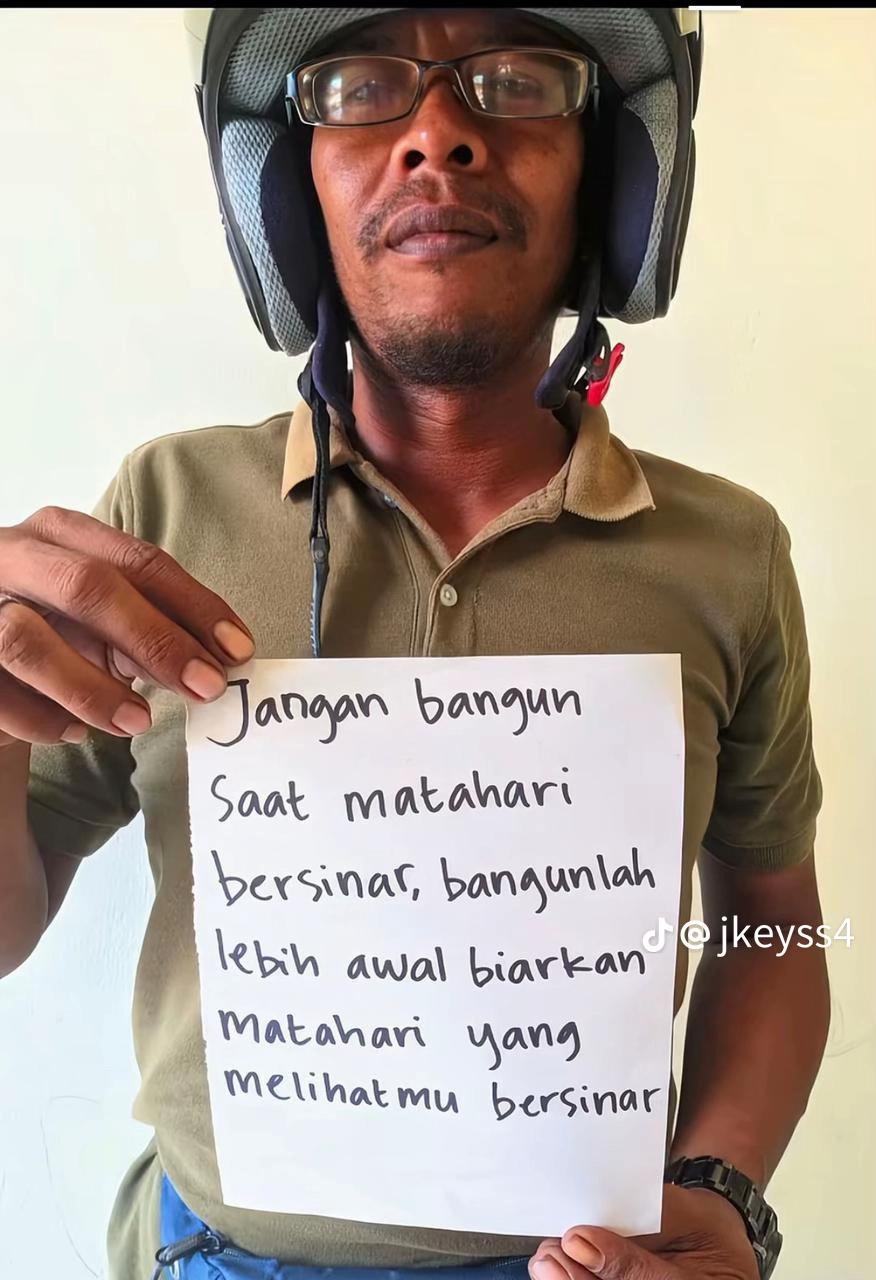 Jangan bangun
Saat matahari
bersinar, bangunlah
lebih awal biarkan
matahari yang
melihatmu bersinar
@jkeyss4